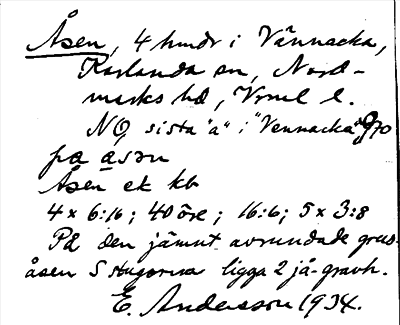 Åsen, 4 hmdr i Vännacka,
Karlanda sn, Nord-
marks hd, Vrml l.
NO sista "a" i "Vennacka" 970
pa åsən
Åsen ek kb
4 x 6:16; 40 öre; 16:6; 5 x 3:8
På den jämnt avrundade grus-
åsen S stugorna ligga 2 jä-gravh.
E. Andersson 1934.